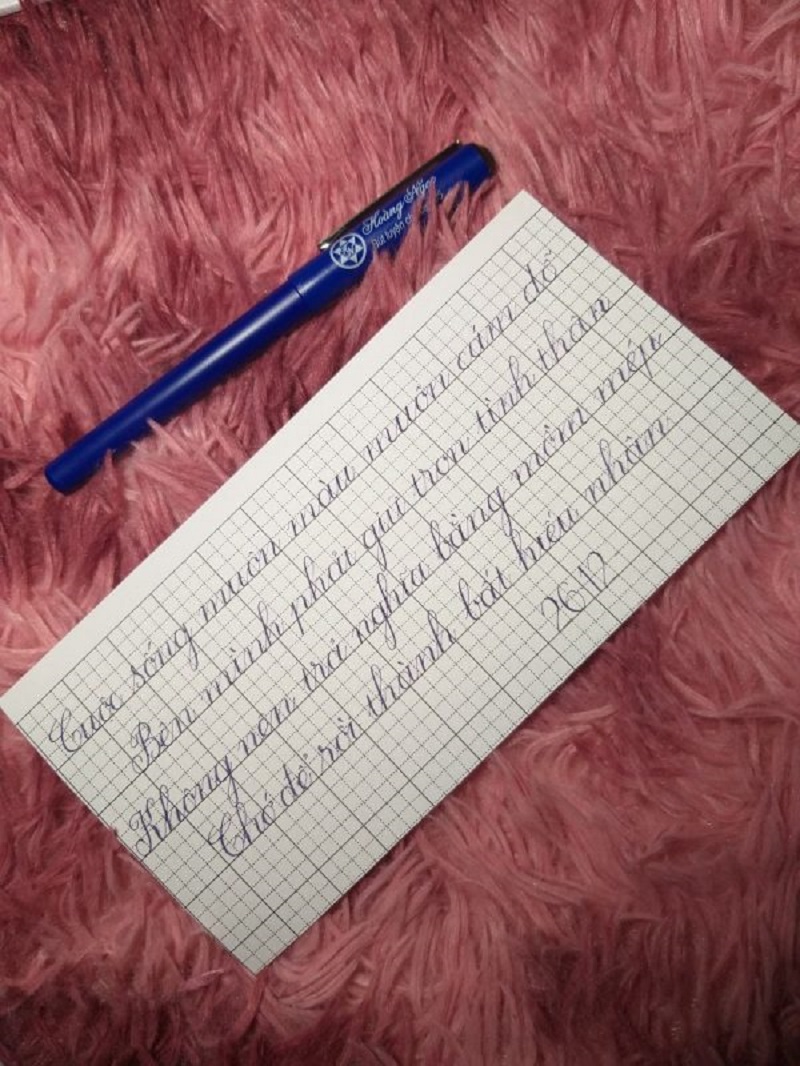 Hoàng Ngọc
Bút luyện
Cuộc sống muôn màu muôn cám dỗ
Bên mình phải giữ trọn tình thân
Không nên trả nghĩa bằng mồm mép
Chớ để rồi thành bất hiếu nhân
26.12